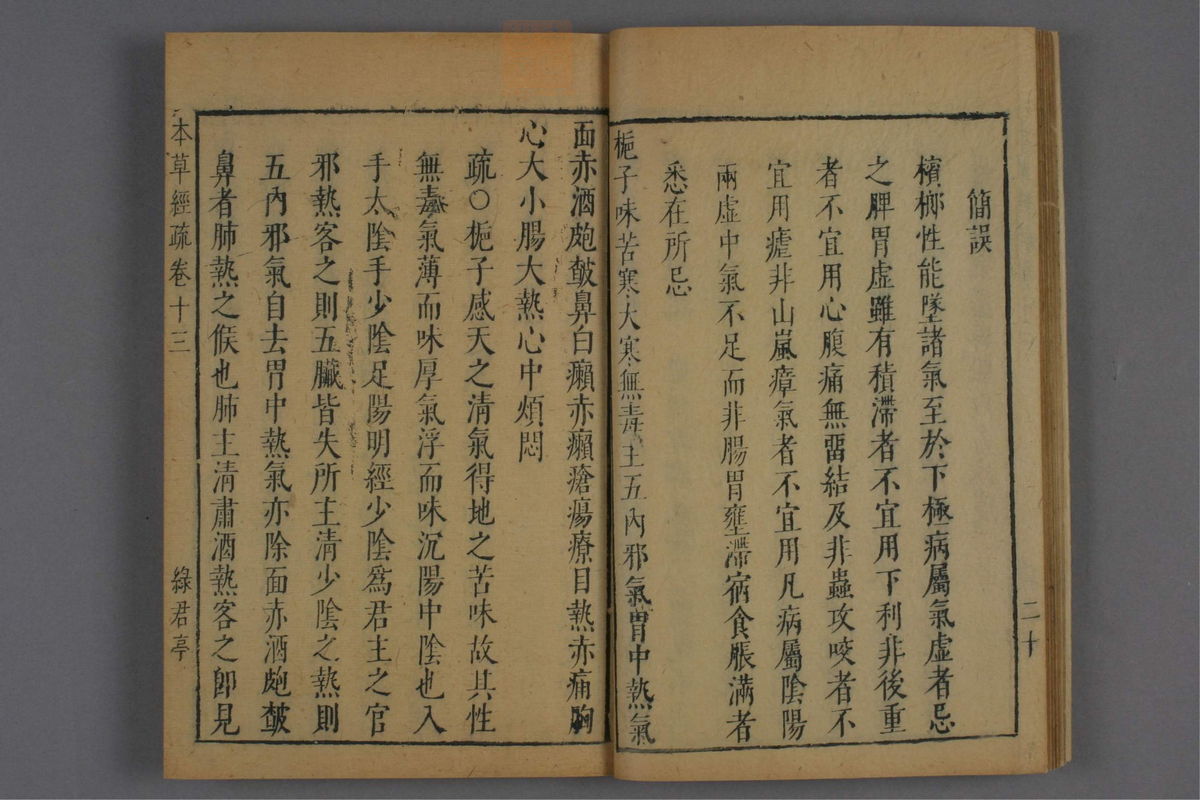 簡誤
檳榔性能墜諸氣至於下極病屬氣虛者忌
之脾胃虛雖有積滯者不宜用下利非後重
者不宜用心腹痛無畱結及非蟲攻咬者不
宜用瘧非山嵐瘴氣者不宜用凡病屬陰陽
兩虛中氣不足而非腸胃壅滯宿食脹滿者
悉在所忌
梔子味苦寒大寒無毒主五內邪氣胃中熱氣
二十
面赤酒皰皶鼻白癩赤癩瘡瘍療目熱赤痛胸
心大小腸大熱心中煩悶
疏○梔子感天之清氣得地之苦味故其性
無毒氣薄而味厚氣浮而味沉陽中陰也入
手太陰手少陰足陽明經少陰爲君主之官
邪熱客之則五臟皆失所主清少陰之熱則
五內邪氣自去胃中熱氣亦除面赤酒皰皶
鼻者肺熱之候也肺主清肅酒熱客之卽見
本草經疏 卷十三 綠君亭